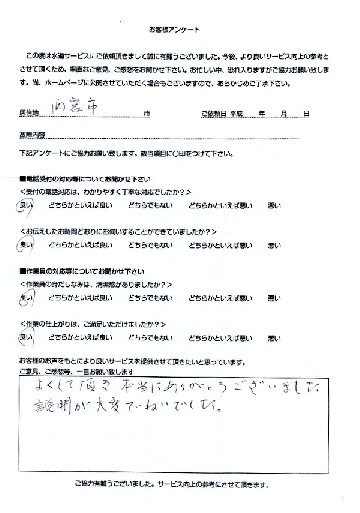 お客様アンケート
この度は水道サービスにご依頼頂きまして誠に有難うございました。今後、より良いサービス向上の参考と
させて頂くため、率直なご意見、ご感想をお聞かせ下さい。お忙しい中、恐れ入りますがご協力お願い致しま
す。尚、ホームページに公開させていただく場合もございますので、あらかじめご了承下さい。
居住地 西宮市 市 ご依頼日 平成 年 月 日
作業内容
下記アンケートにご協力お願い致します。該当項目に〇印をつけて下さい。
■電話受付の対応等についてお聞かせ下さい
<受付の電話対応は、わかりやすく丁寧な対応でしたか?>
良い どちらかといえば良い どちらでもない どちらかといえば悪い 悪い
<お伝えしたお時間どおりにお伺いすることができていましたか?>
良い どちらかといえば良い どちらでもない どちらかといえば悪い 悪い
■作業員の対応等についてお聞かせ下さい
<作業員の身だしなみは、清潔感がありましたか?>
良い どちらかといえば良い どちらでもない どちらかといえば悪い 悪い
<作業の仕上がりは、ご満足いただけましたか?>
良い どちらかといえば良い どちらでもない どちらかといえば悪い 悪い
お客様のお声をもとにより良いサービスを提供させて頂きたいと思っています。
ご意見、ご感想等、一言お願い致します
よくして頂き 本当にありがとうございました
説明が大変ていねいでした。
ご協力有難うございました。サービス向上の参考にさせて頂きます。